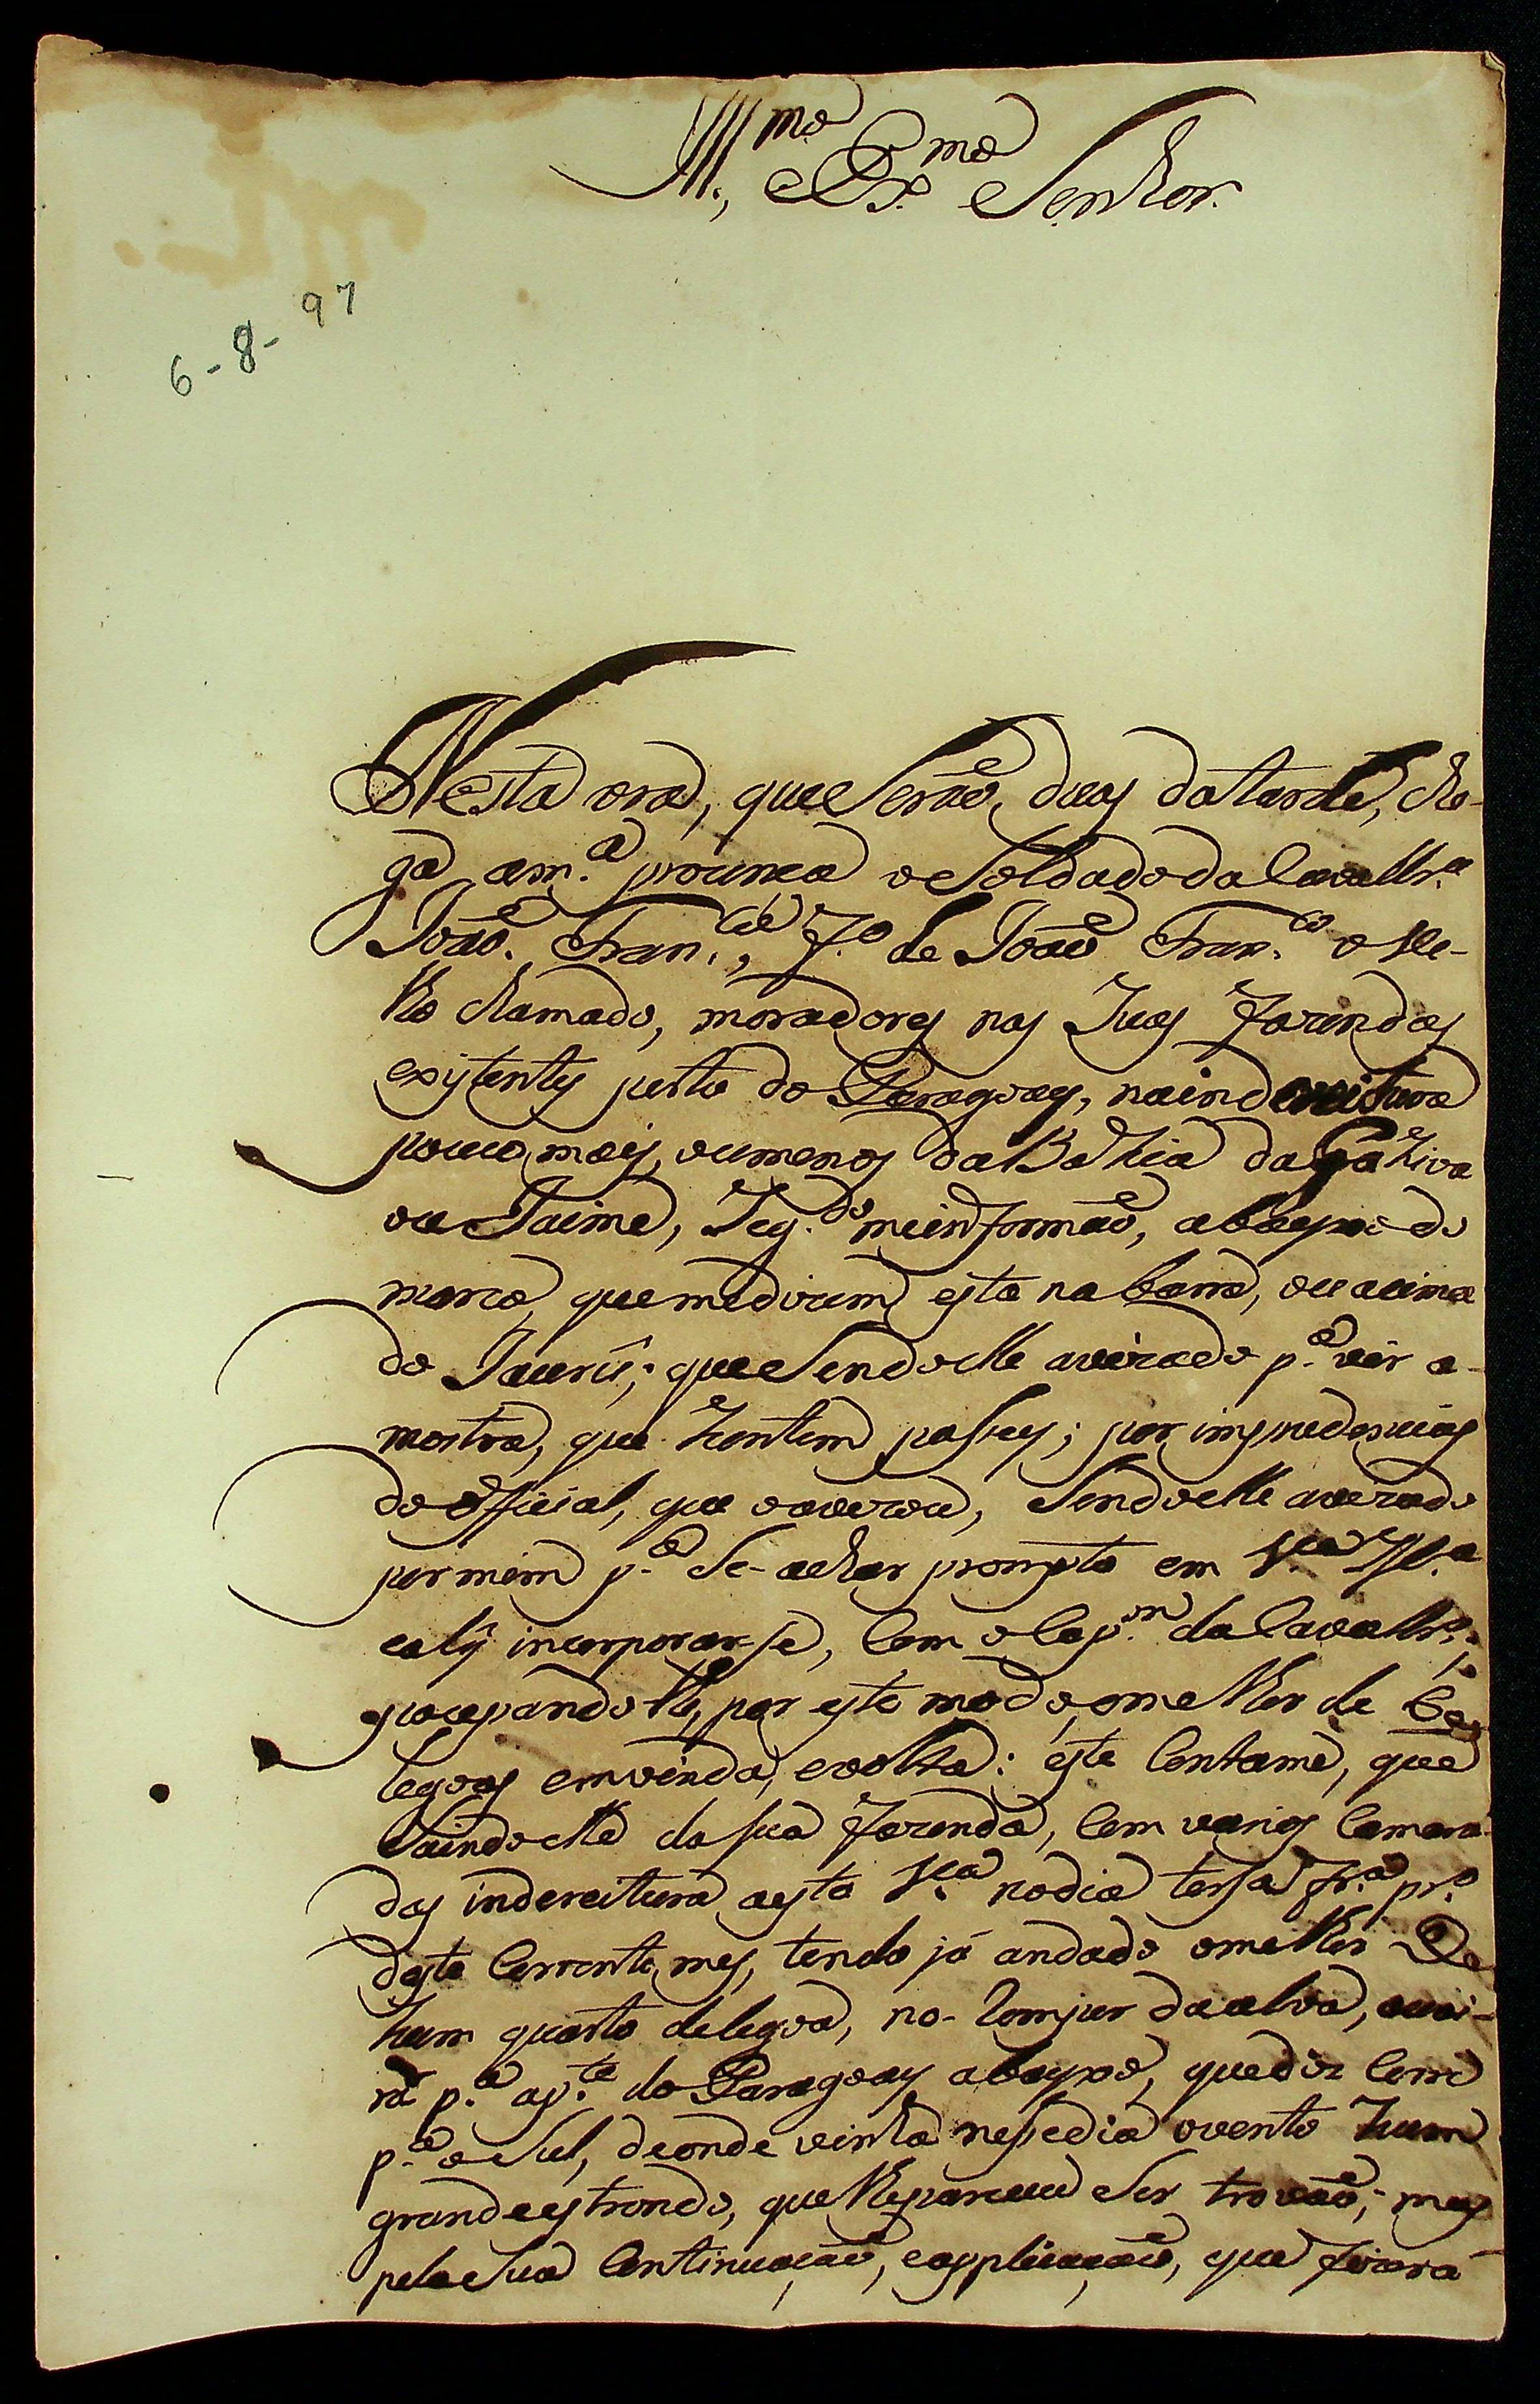 Ill.mo Ex.mo Senhor.
6-8-97
Nesta ora, que Serão, duas da tarde, che-
ga a m.a prezença o Soldado da Cavallr.a
João Fran.co, f.o de João Fran.co o Ve-
lho chamado, moradores nas Suas Fazendas
existentes perto do Paragoay, na indereitura
pouco mais, ou menos da Bahia da Gahiva
ou Taime, Seg.do me informão, abayxo do
marco, que me dizem, esta na barra, ou acima
do Jaurú; que Sendo elle avizado p.a vir a
mostra, que hontem passey; por
do official, que o avizou, Sendo elle avizado
por mim p.a Se-achar prompto em V.a
e aly incorporar-se, Com o Cap.m da Cavallr.a;
poupandolhe, por este modo, o melhor de
legoas em vinda, e volta: este Contame, que
Saindo elle da sua Fazenda, Com varios Camara-
das indereitura a esta V.a no dia tersa fr.a pr.o
deste Corrente mes, tendo já andado o melhor De
hum quarto de legoa, no-romper da alva, ouvi-
rã p.a a p.te do Paragoay abayxo, que diz Corre
p.a o Sul, deonde vinha nesse dia o vento hum
grande estrondo, que lhe pareceu Ser trovão; mas
pela Sua Continuação, e applicação, que fizerã